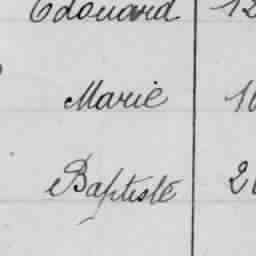 Edouard 12
Marie
Baptiste